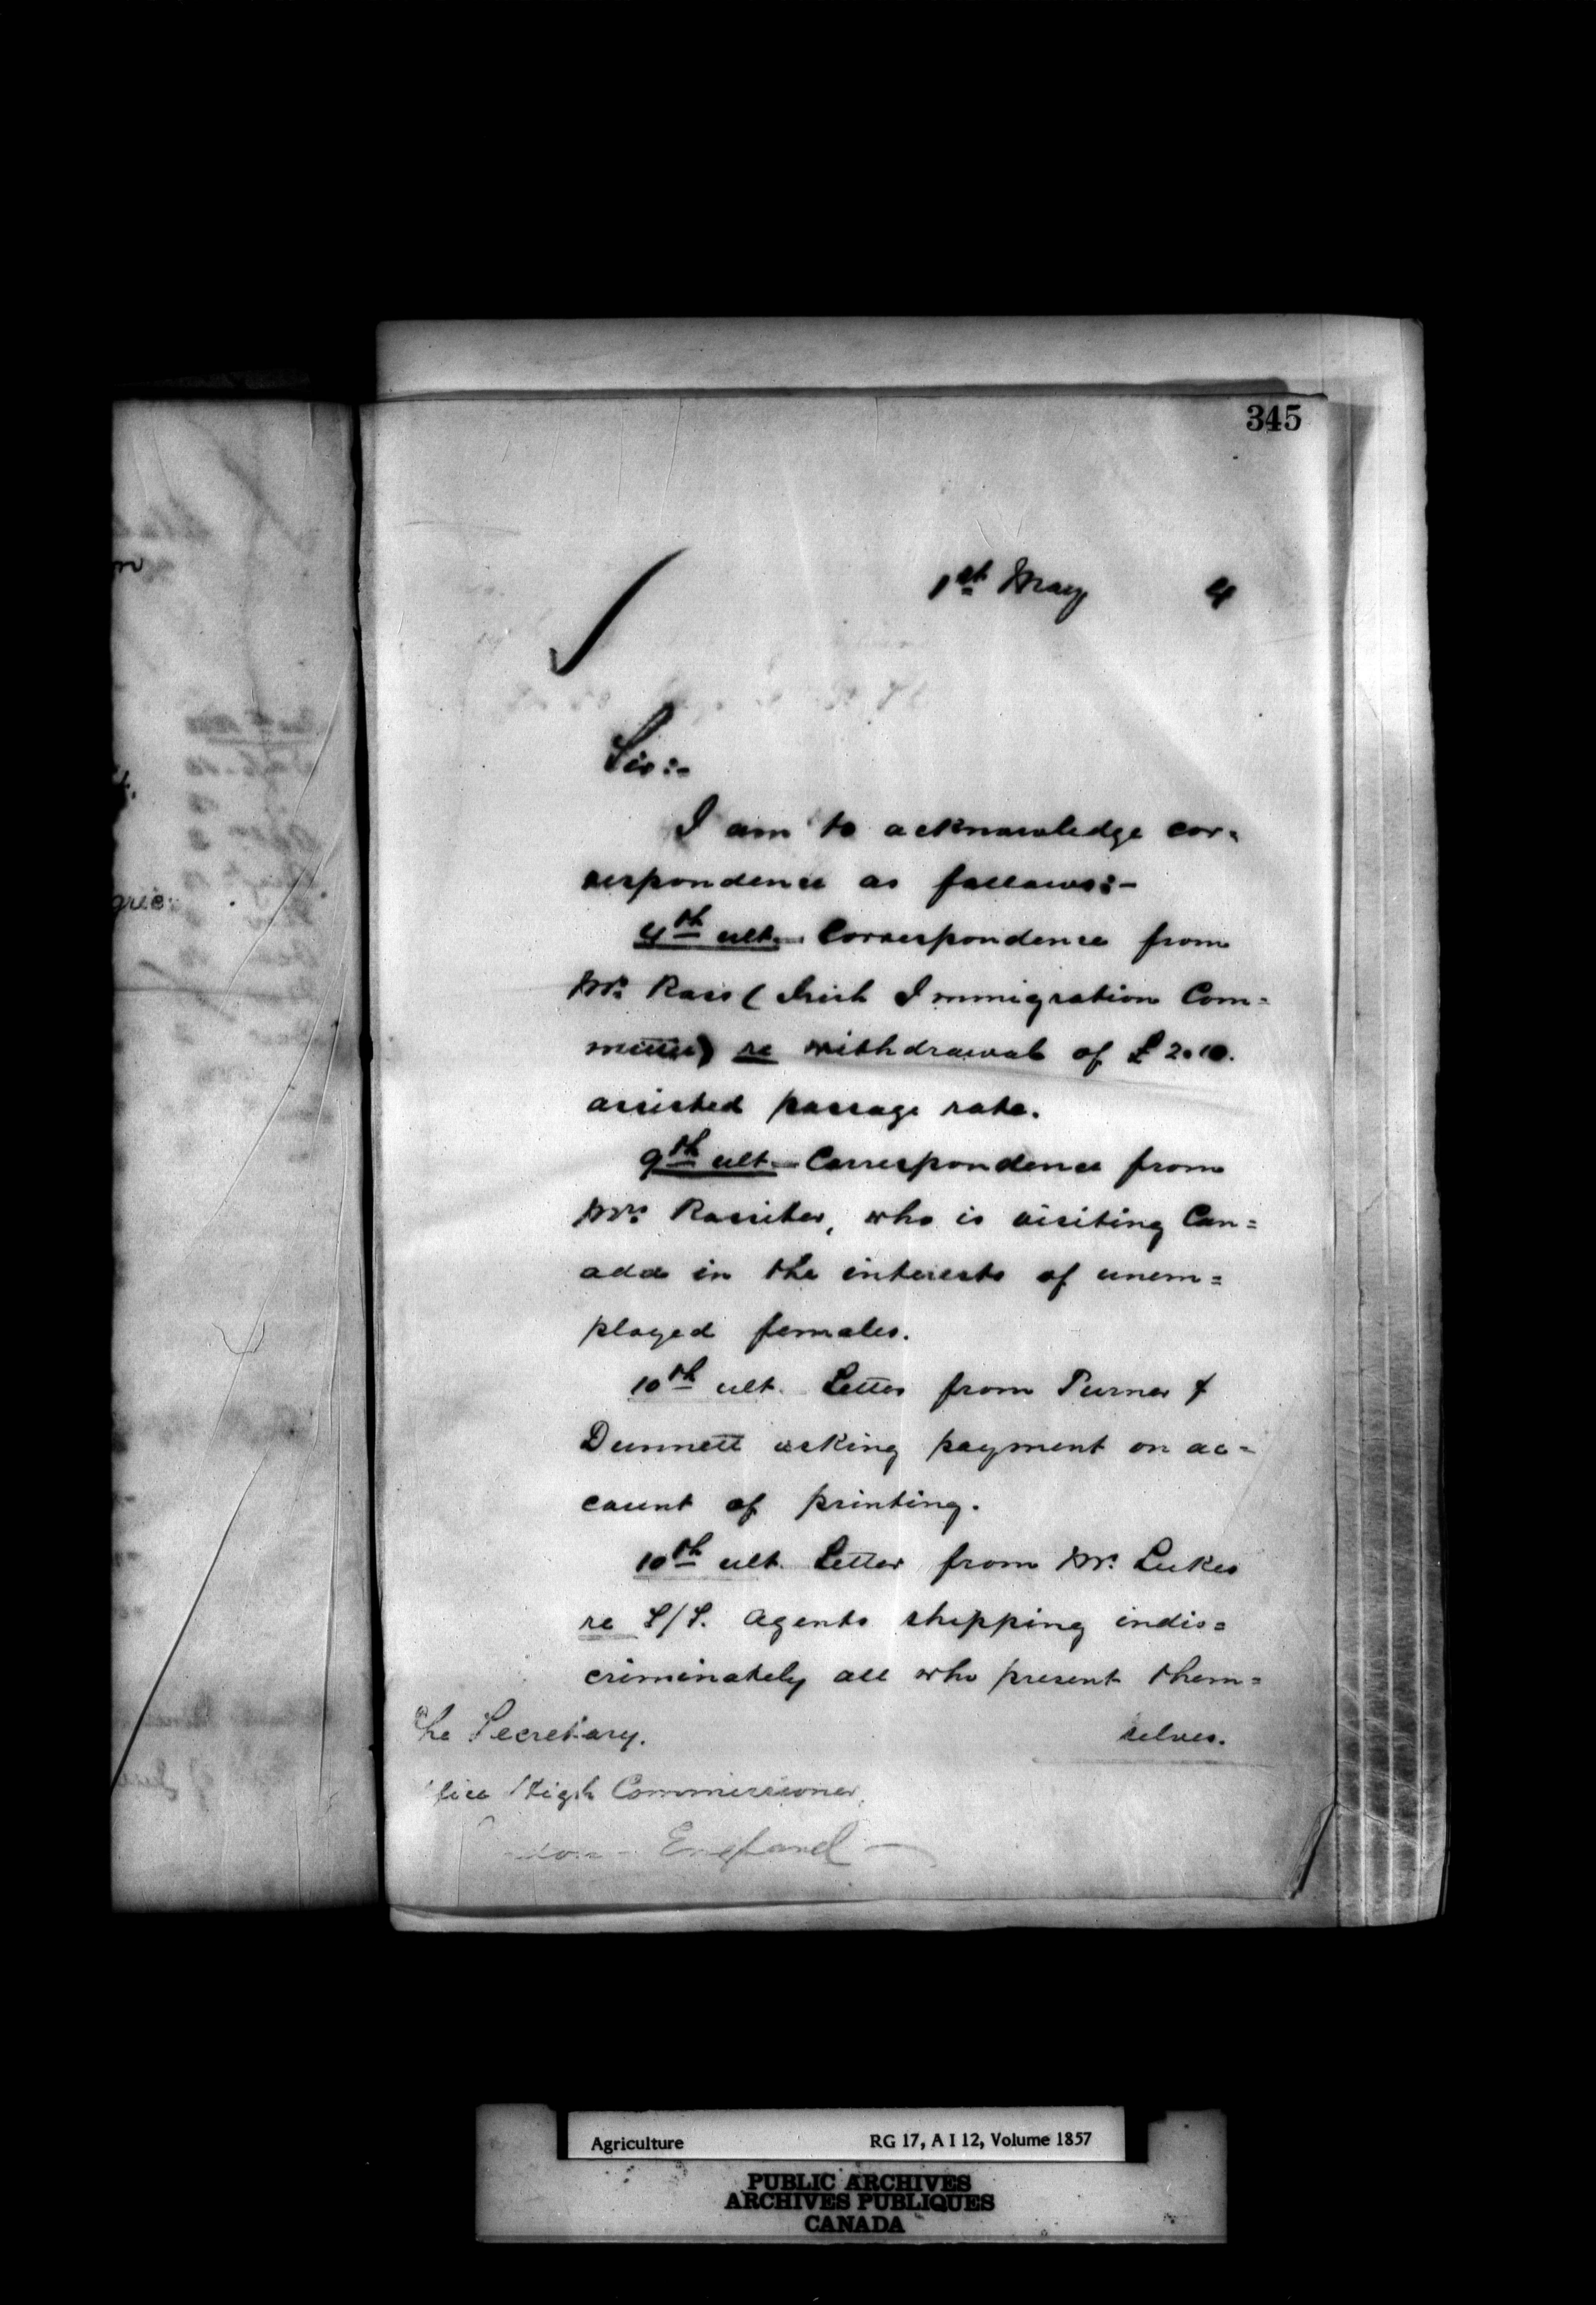 345
1st May 4
Sir:-
I am to acknowledge cor=
respondence as follows:-
4th ult. Correspondence from
Mr. Ross (Irish Immigration Com=
mittee) re withdrawal of £2.10.
assisted passage rate.
9th ult. Correspondence from
Mrs. Rossiter, who is visiting Can=
ada in the interests of unem=
ployed females.
10th ult. Letter from Turner &
Dunnett asking payment on ac=
count of printing.
10th ult. Letter from Mr. Lukes
re S/S. Agents shipping indis=
criminately all who present them=
selves.
he Secretary.
fice High Commissioner,
don - England -
gric.
Agriculture RG 17, A I 12, Volume 1857
PUBLIC ARCHIVES
ARCHIVES PUBLIQUES
CANADA